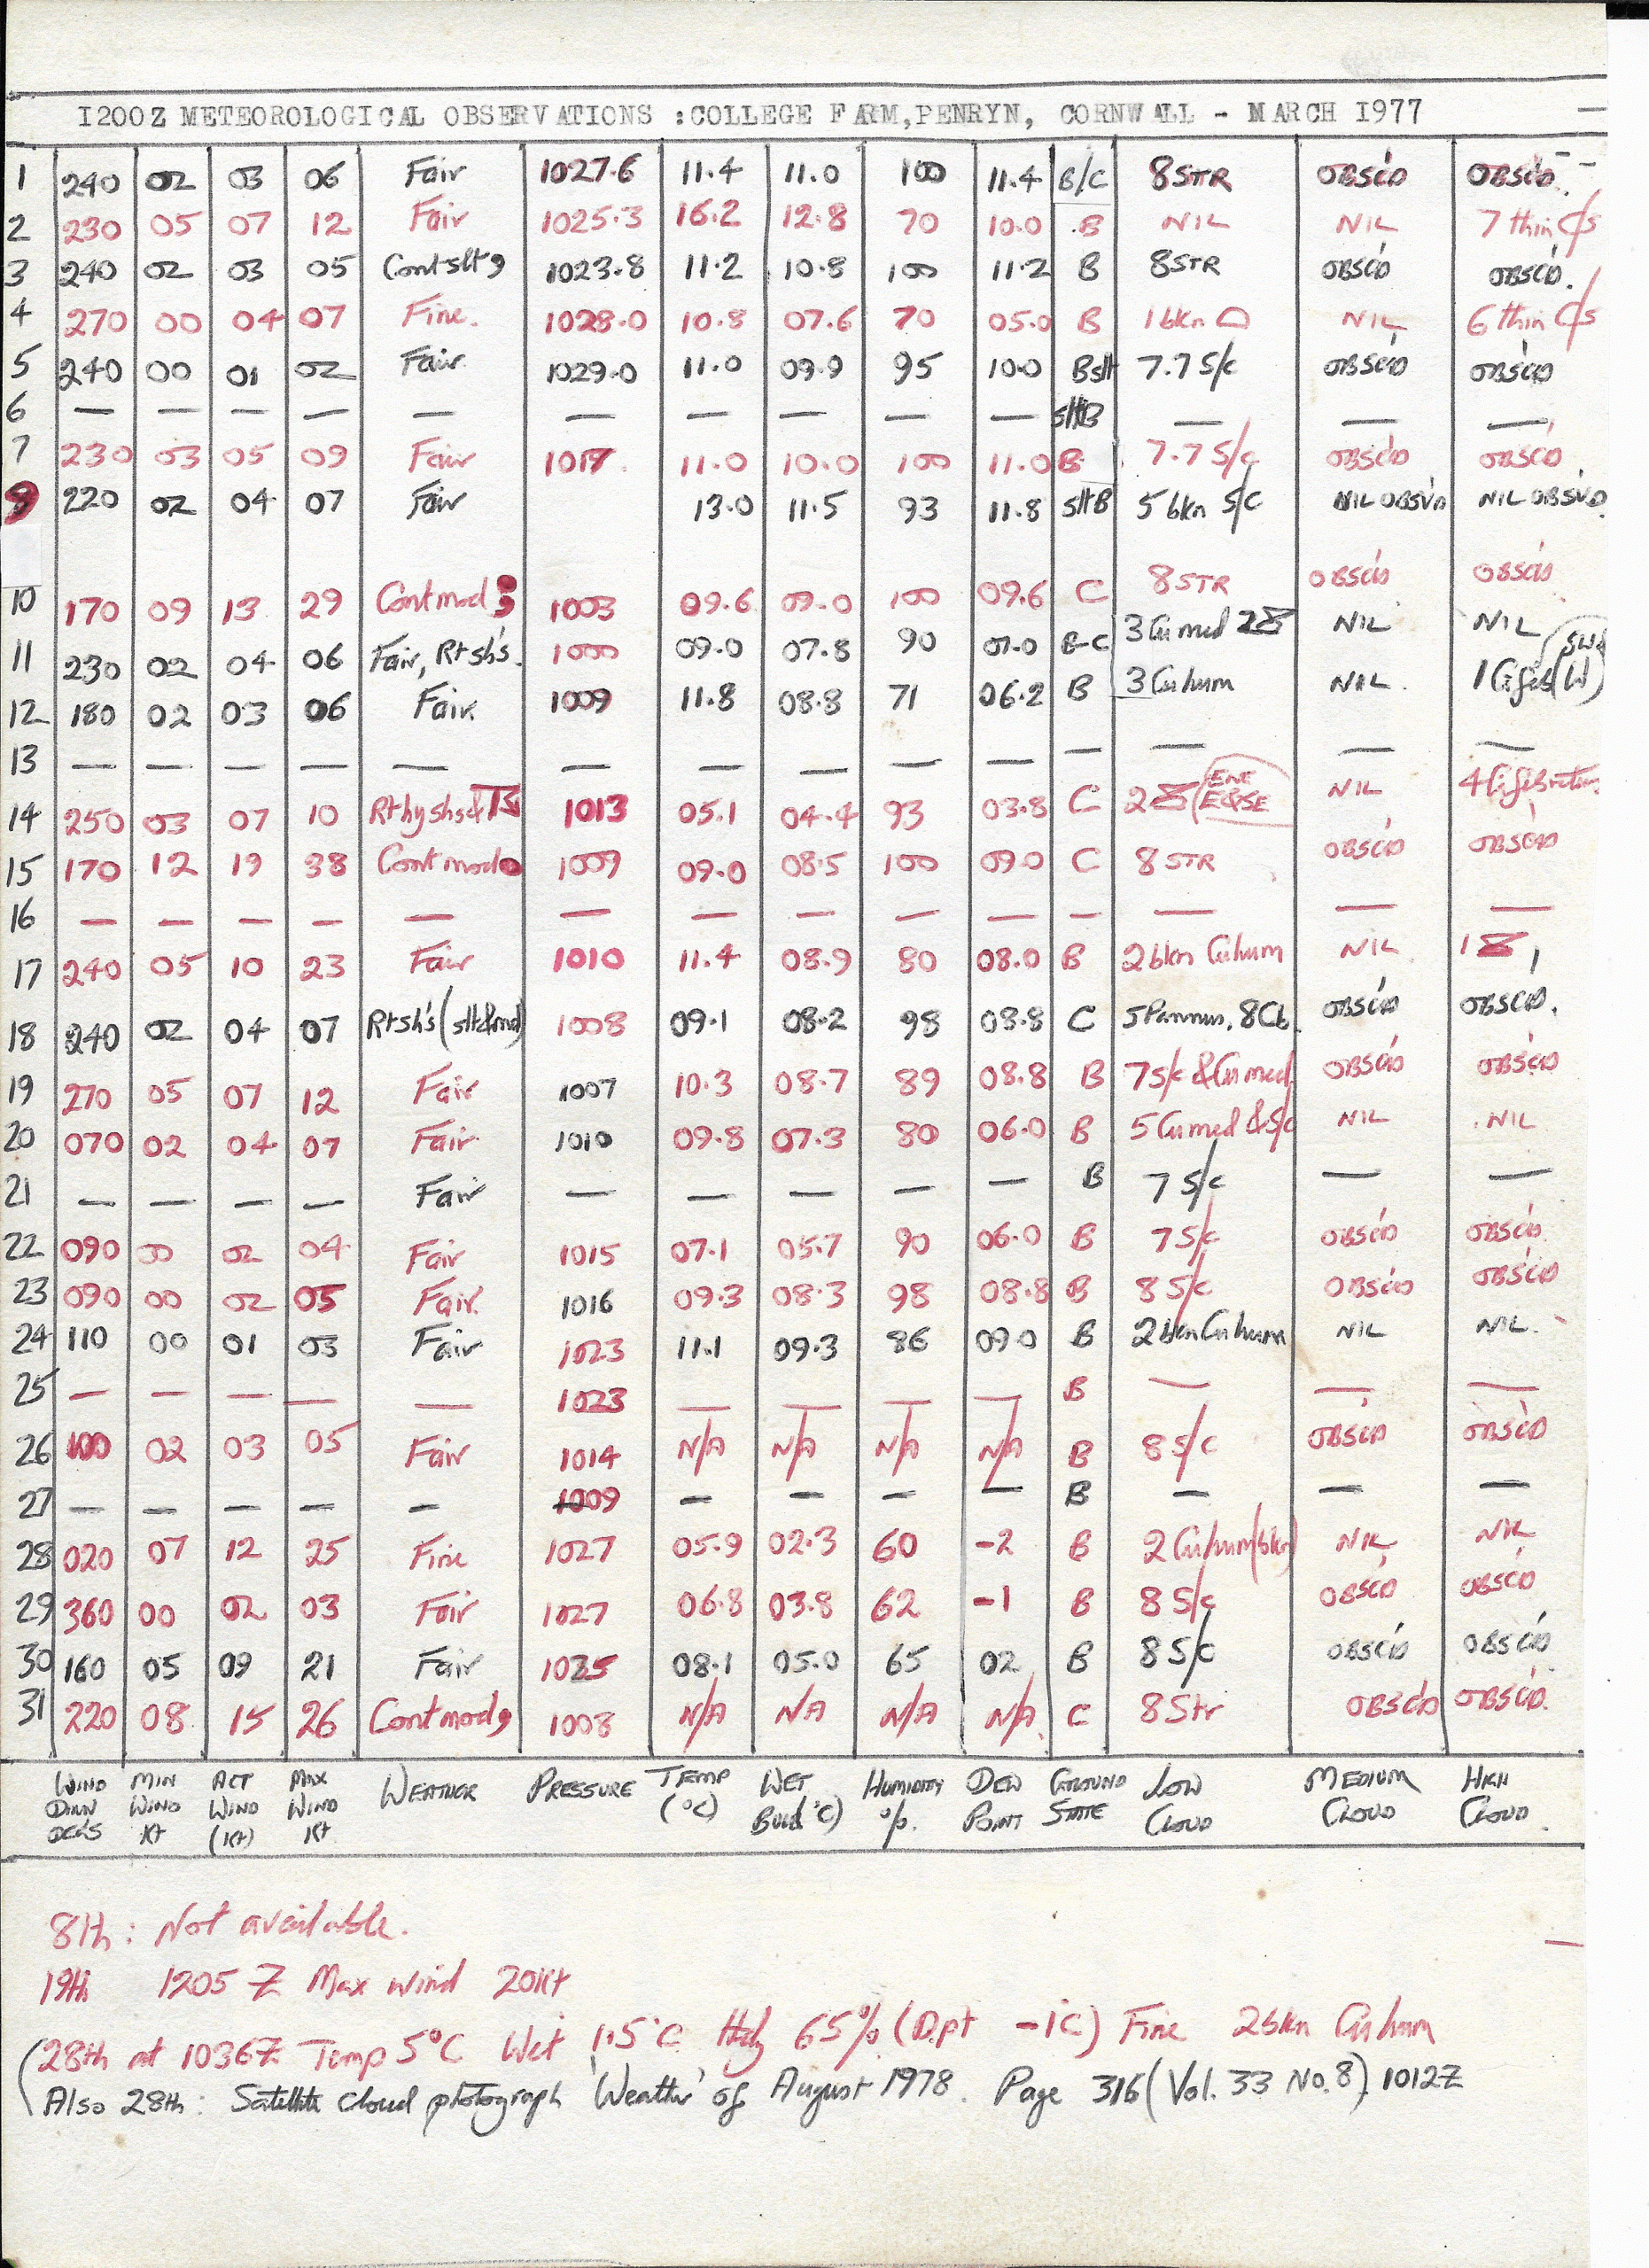 1200Z METEOROLOGICAL OBSERVATIONS :COLLEGE FARM,PENRYN, CORNWALL - MARCH 1977
1 240 02 03 06 Fair 1027.6 11.4 11.0 100 11.4 B/C 8STR OBSC'D OBSC'D.
2 230 05 07 12 Fair 1025.3 16.2 12.8 70 10.0 B NIL NIL 7 thin C/s
3 240 02 03 05 Cont slt 9 1023.8 11.2 10.8 100 11.2 B 8STR OBSC'D OBSC'D.
4 270 00 04 07 Fine. 1028.0 10.8 07.6 70 05.0 B 1 bkn NIL 6 thin C/s
5 240 00 01 02 Fair. 1029.0 11.0 09.9 95 10.0 Bslt 7.7 S/c OBSC'D OBSC'D
6 — — — — — — — — — — sltB — — —
7 230 03 05 09 Fair 1017. 11.0 10.0 100 11.0 B 7.7 S/c OBSC'D OBSC'D
220 02 04 07 Fair 13.0 11.5 93 11.8 sltB 5 bkn S/c NIL OBSV'D NIL OBSV'D
10 170 09 13 29 Cont mod 1003 09.6 09.0 100 09.6 C 8STR OBSC'D OBSC'D
11 230 02 04 06 Fair, Rtsh's. 1000 09.0 07.8 90 07.0 B-C 3 Cu med 2 NIL NIL
12 180 02 03 06 Fair. 1009 11.8 08.8 71 06.2 B 3 Cu hum NIL. 1 Ci fib (W) SW
13 — — — — — — — — — — — — — —
14 250 03 07 10 Rt hy shs & 1013 05.1 04.4 93 03.8 C 2 (ENE E&SE NIL 4 Ci fib
15 170 12 19 38 Cont mod 1009 09.0 08.5 100 09.0 C 8 STR OBSC'D OBSC'D
16 — — — — — — — — — — — — — —
17 240 05 10 23 Fair 1010 11.4 08.9 80 08.0 B 2 bkn Cu hum NIL 1
18 240 02 04 07 Rtsh's (slt&mod) 1008 09.1 08.2 98 08.8 C 5 Pannus, 8 Cb. OBSC'D OBSC'D.
19 270 05 07 12 Fair 1007 10.3 08.7 89 08.8 B 7 S/c & Cu med OBSC'D OBSC'D
20 070 02 04 07 Fair 1010 09.8 07.3 80 06.0 B 5 Cu med & S/c NIL NIL
21 — — — — Fair — — — — — B 7 S/c — —
22 090 00 02 04 Fair 1015 07.1 05.7 90 06.0 B 7 S/c OBSC'D OBSC'D
23 090 00 02 05 Fair. 1016 09.3 08.3 98 08.8 B 8 S/c OBSC'D OBSC'D
24 110 00 01 03 Fair 1023 11.1 09.3 86 09.0 B 2 bkn Cu hum NIL NIL.
25 — — — — — 1023 — — — — B — — —
26 100 02 03 05 Fair 1014 N/A N/A N/A N/A B 8 S/c OBSC'D OBSC'D
27 — — — — — 1009 — — — — B — — —
28 020 07 12 25 Fine 1027 05.9 02.3 60 -2 B 2 Cu hum (bkn) NIL NIL
29 360 00 02 03 Fair 1027 06.8 03.8 62 -1 B 8 S/c OBSC'D OBSC'D
30 160 05 09 21 Fair 1025 08.1 05.0 65 02 B 8 S/c OBSC'D OBSC'D
31 220 08 15 26 Cont mod 9 1008 N/A N/A N/A N/A. C 8 Str OBSC'D OBSC'D.
WIND MIN ACT MAX WEATHER PRESSURE TEMP WET HUMIDITY DEW GROUND LOW MEDIUM HIGH
DIRN WIND WIND WIND (°C) BULB °C) %. POINT STATE CLOUD CLOUD CLOUD.
DEGS Kt (Kt) Kt
8th: Not available.
19th 1205 Z Max wind 20Kt
(28th at 1036Z Temp 5°C Wet 1.5°C Hdy 65% (D.pt -1°C) Fine 2bkn Cu hum
Also 28th: Satellite cloud photograph 'Weather' of August 1978. Page 316 (Vol. 33 No. 8) 1012Z